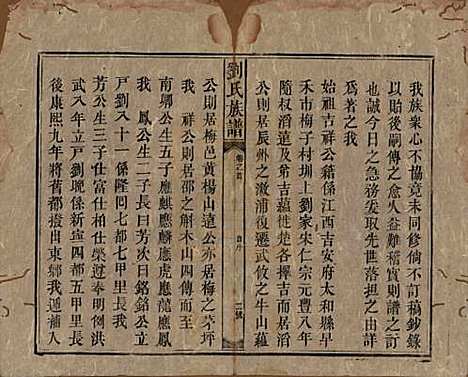 我族衆心不協竟未同修倘不訂稿鈔錄
以後嗣傳之愈久益難稽實則譜之訂
也誠今日之急務矣爰先世落担之由詳
爲著之我
始祖吉祥公藉係江西吉安府太和縣早
禾市梅子村圳上劉家宋仁宗元豐八年
隨叔滔遠及弟吉蘊徙楚各擇吉而居滔
公則居辰州之漵浦復遷武攸之牛山蘊
劉氏族譜
卷之首
二
公則居梅邑黃楊山遠公亦居梅之茅坪
我 祥公則居邵之斛木山四傳而至
南卿公生五子應麒應麟應虎應龍應鳳
我 鳳公生二子長曰芳次曰銘銘公立
戸劉八十一係隆回七都七甲里長
芳公生三子仕富仕柏仕榮過奉明何
武八年立戸劉晚係新寧四都五甲里長
後康熙九年將舊都撥自東鄉我邁補入